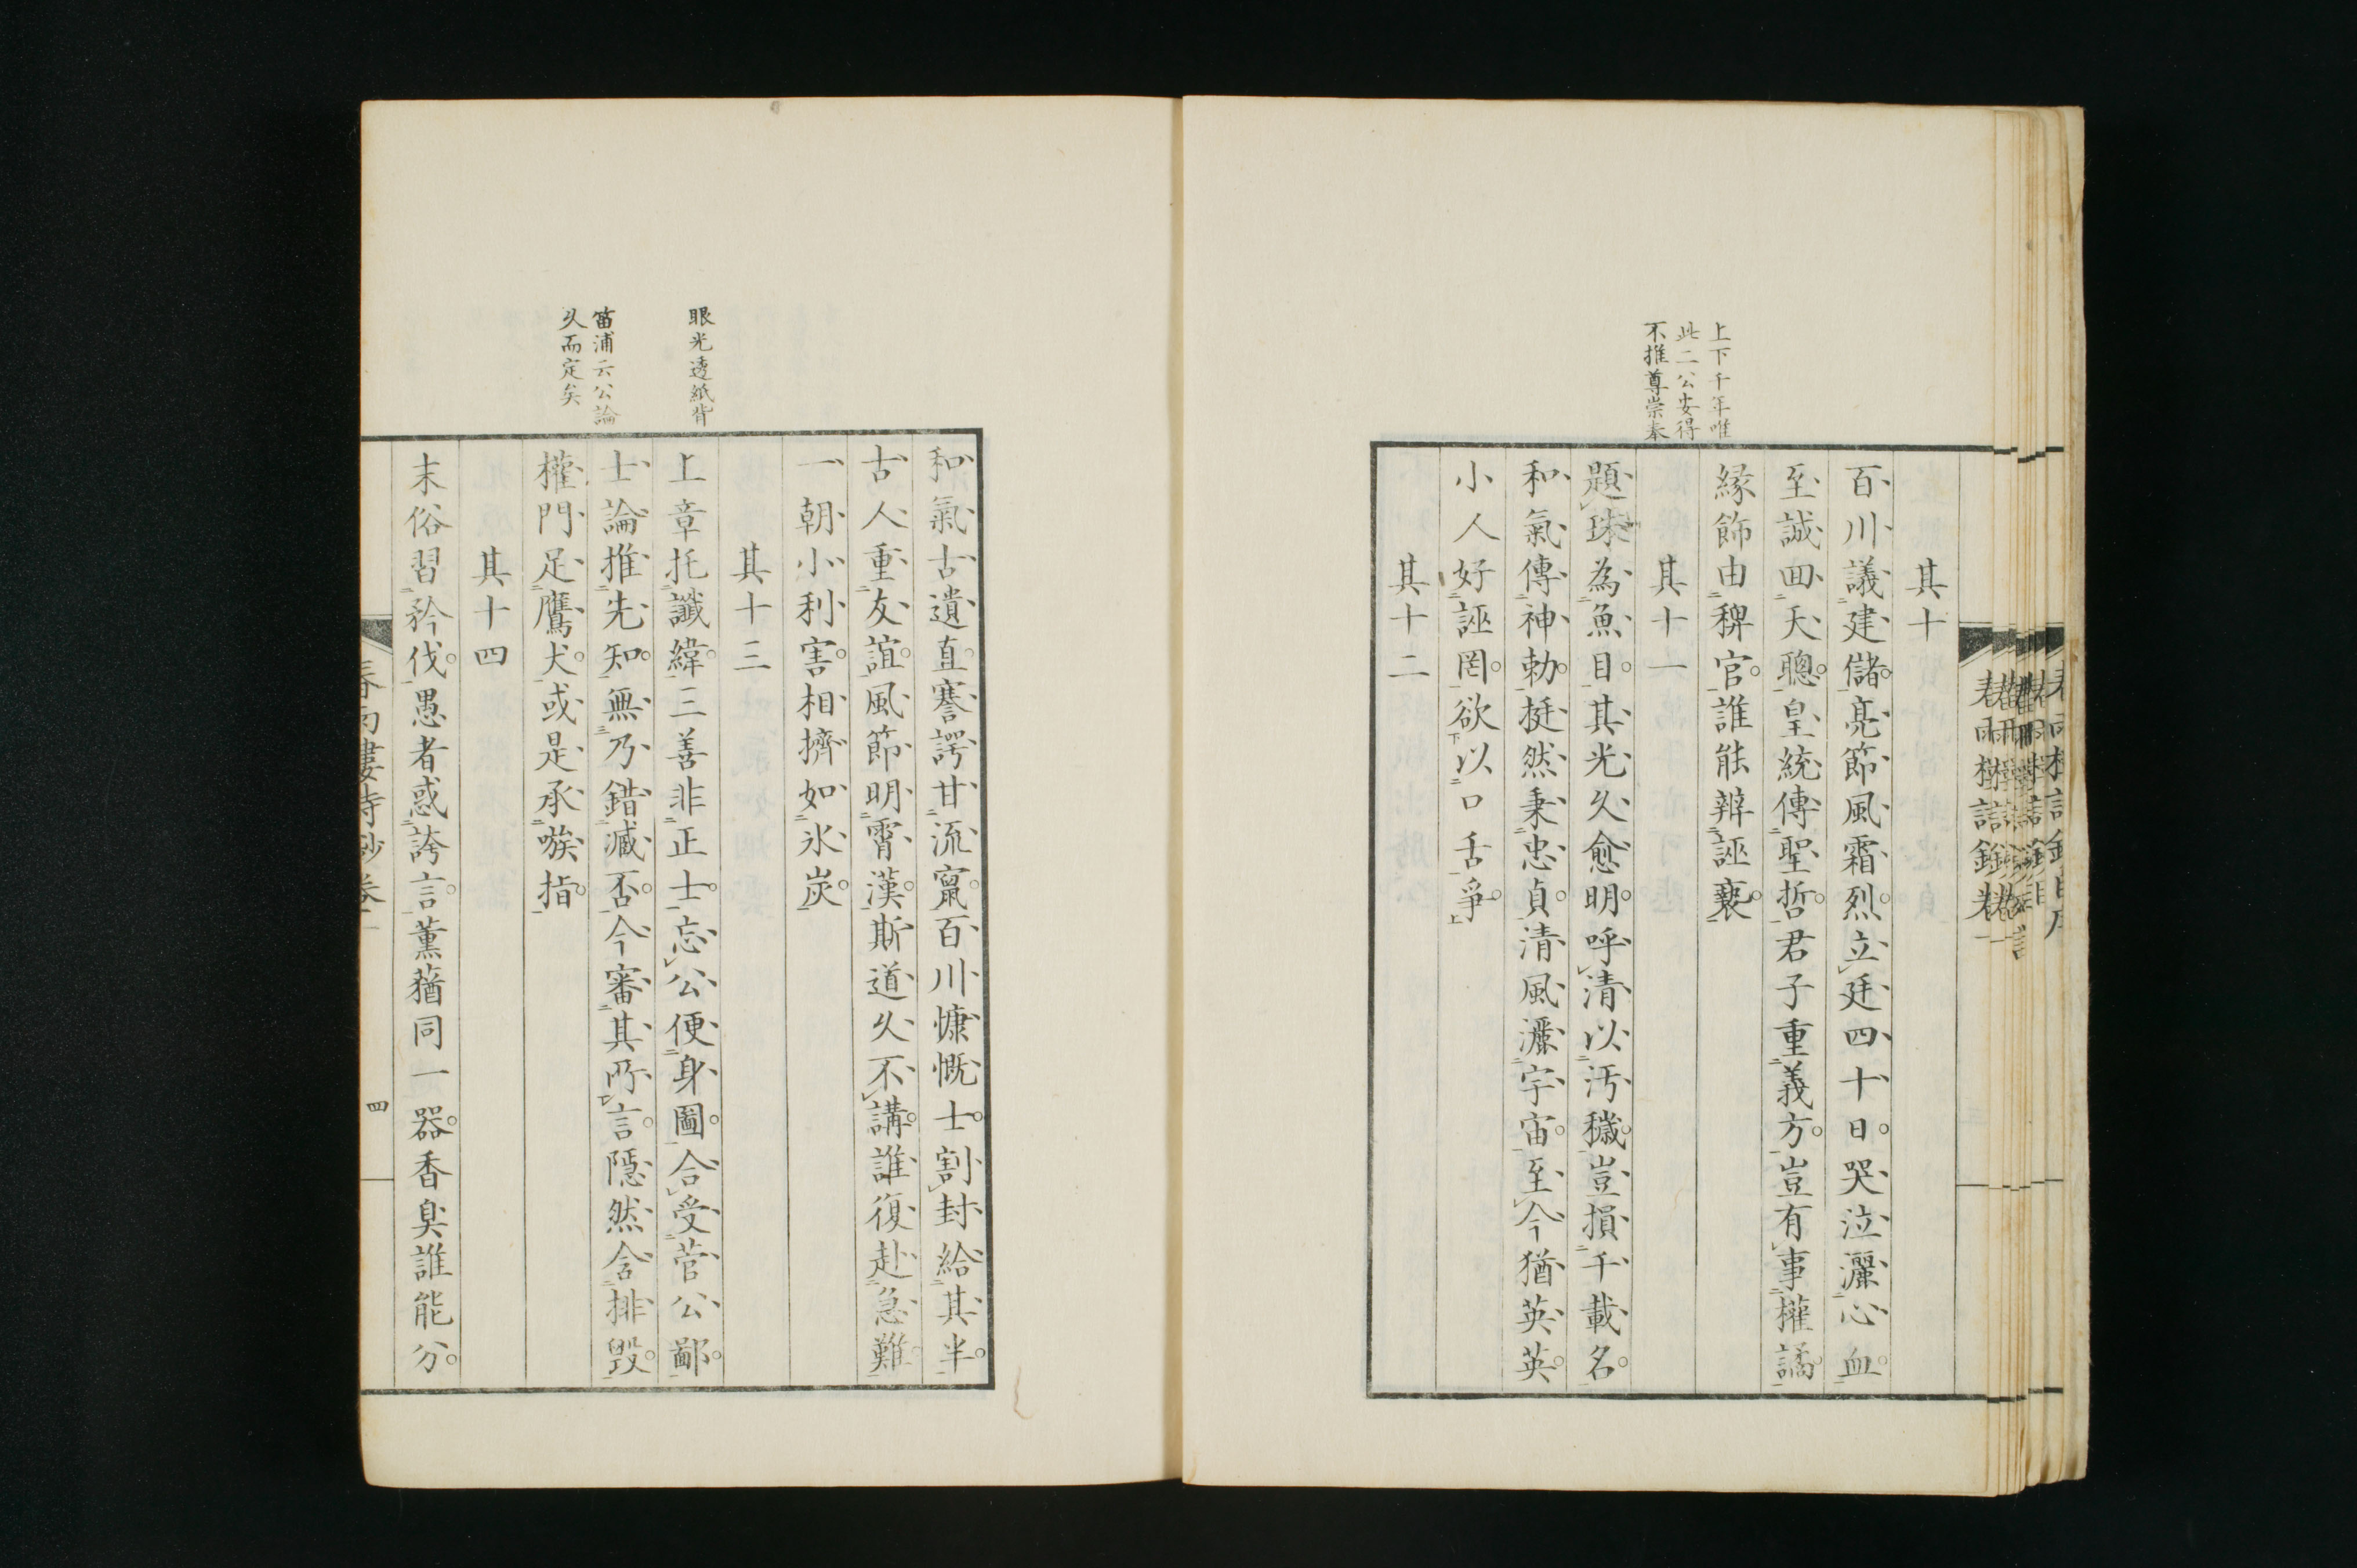 上下千年唯
此二公安得
不推尊崇奉
其十
百川議建儲亮節風霜烈立廷四十日哭泣灑心血
至誠回天聰皇統傳聖哲君子重義方豈有事權譎
縁飾由稗官誰能辨誣褻
其十一
題珠為魚目其光久愈明呼清以汚穢豈損千載名
和氣傳神勅挺然秉忠貞清風灑宇宙至今猶英英
小人好誣罔欲以口舌爭
其十二
眼光透紙背
笛浦云公論
久而定矣
和氣古遺直謇諤甘流竄百川慷慨士割封給其半
古人重友誼風節明霄漢斯道久不講誰復赴急難
一朝小利害相擠如氷炭
其十三
上章托讖緯三善非正士忘公便身圖合受菅公鄙
士論推先知無乃錯臧否今審其所言隱然含排毀
權門足鷹犬或是承嗾指
其十四
末俗習矜伐愚者惑誇言薫蕕同一器香臭誰能分
春雨樓詩鈔卷一
四